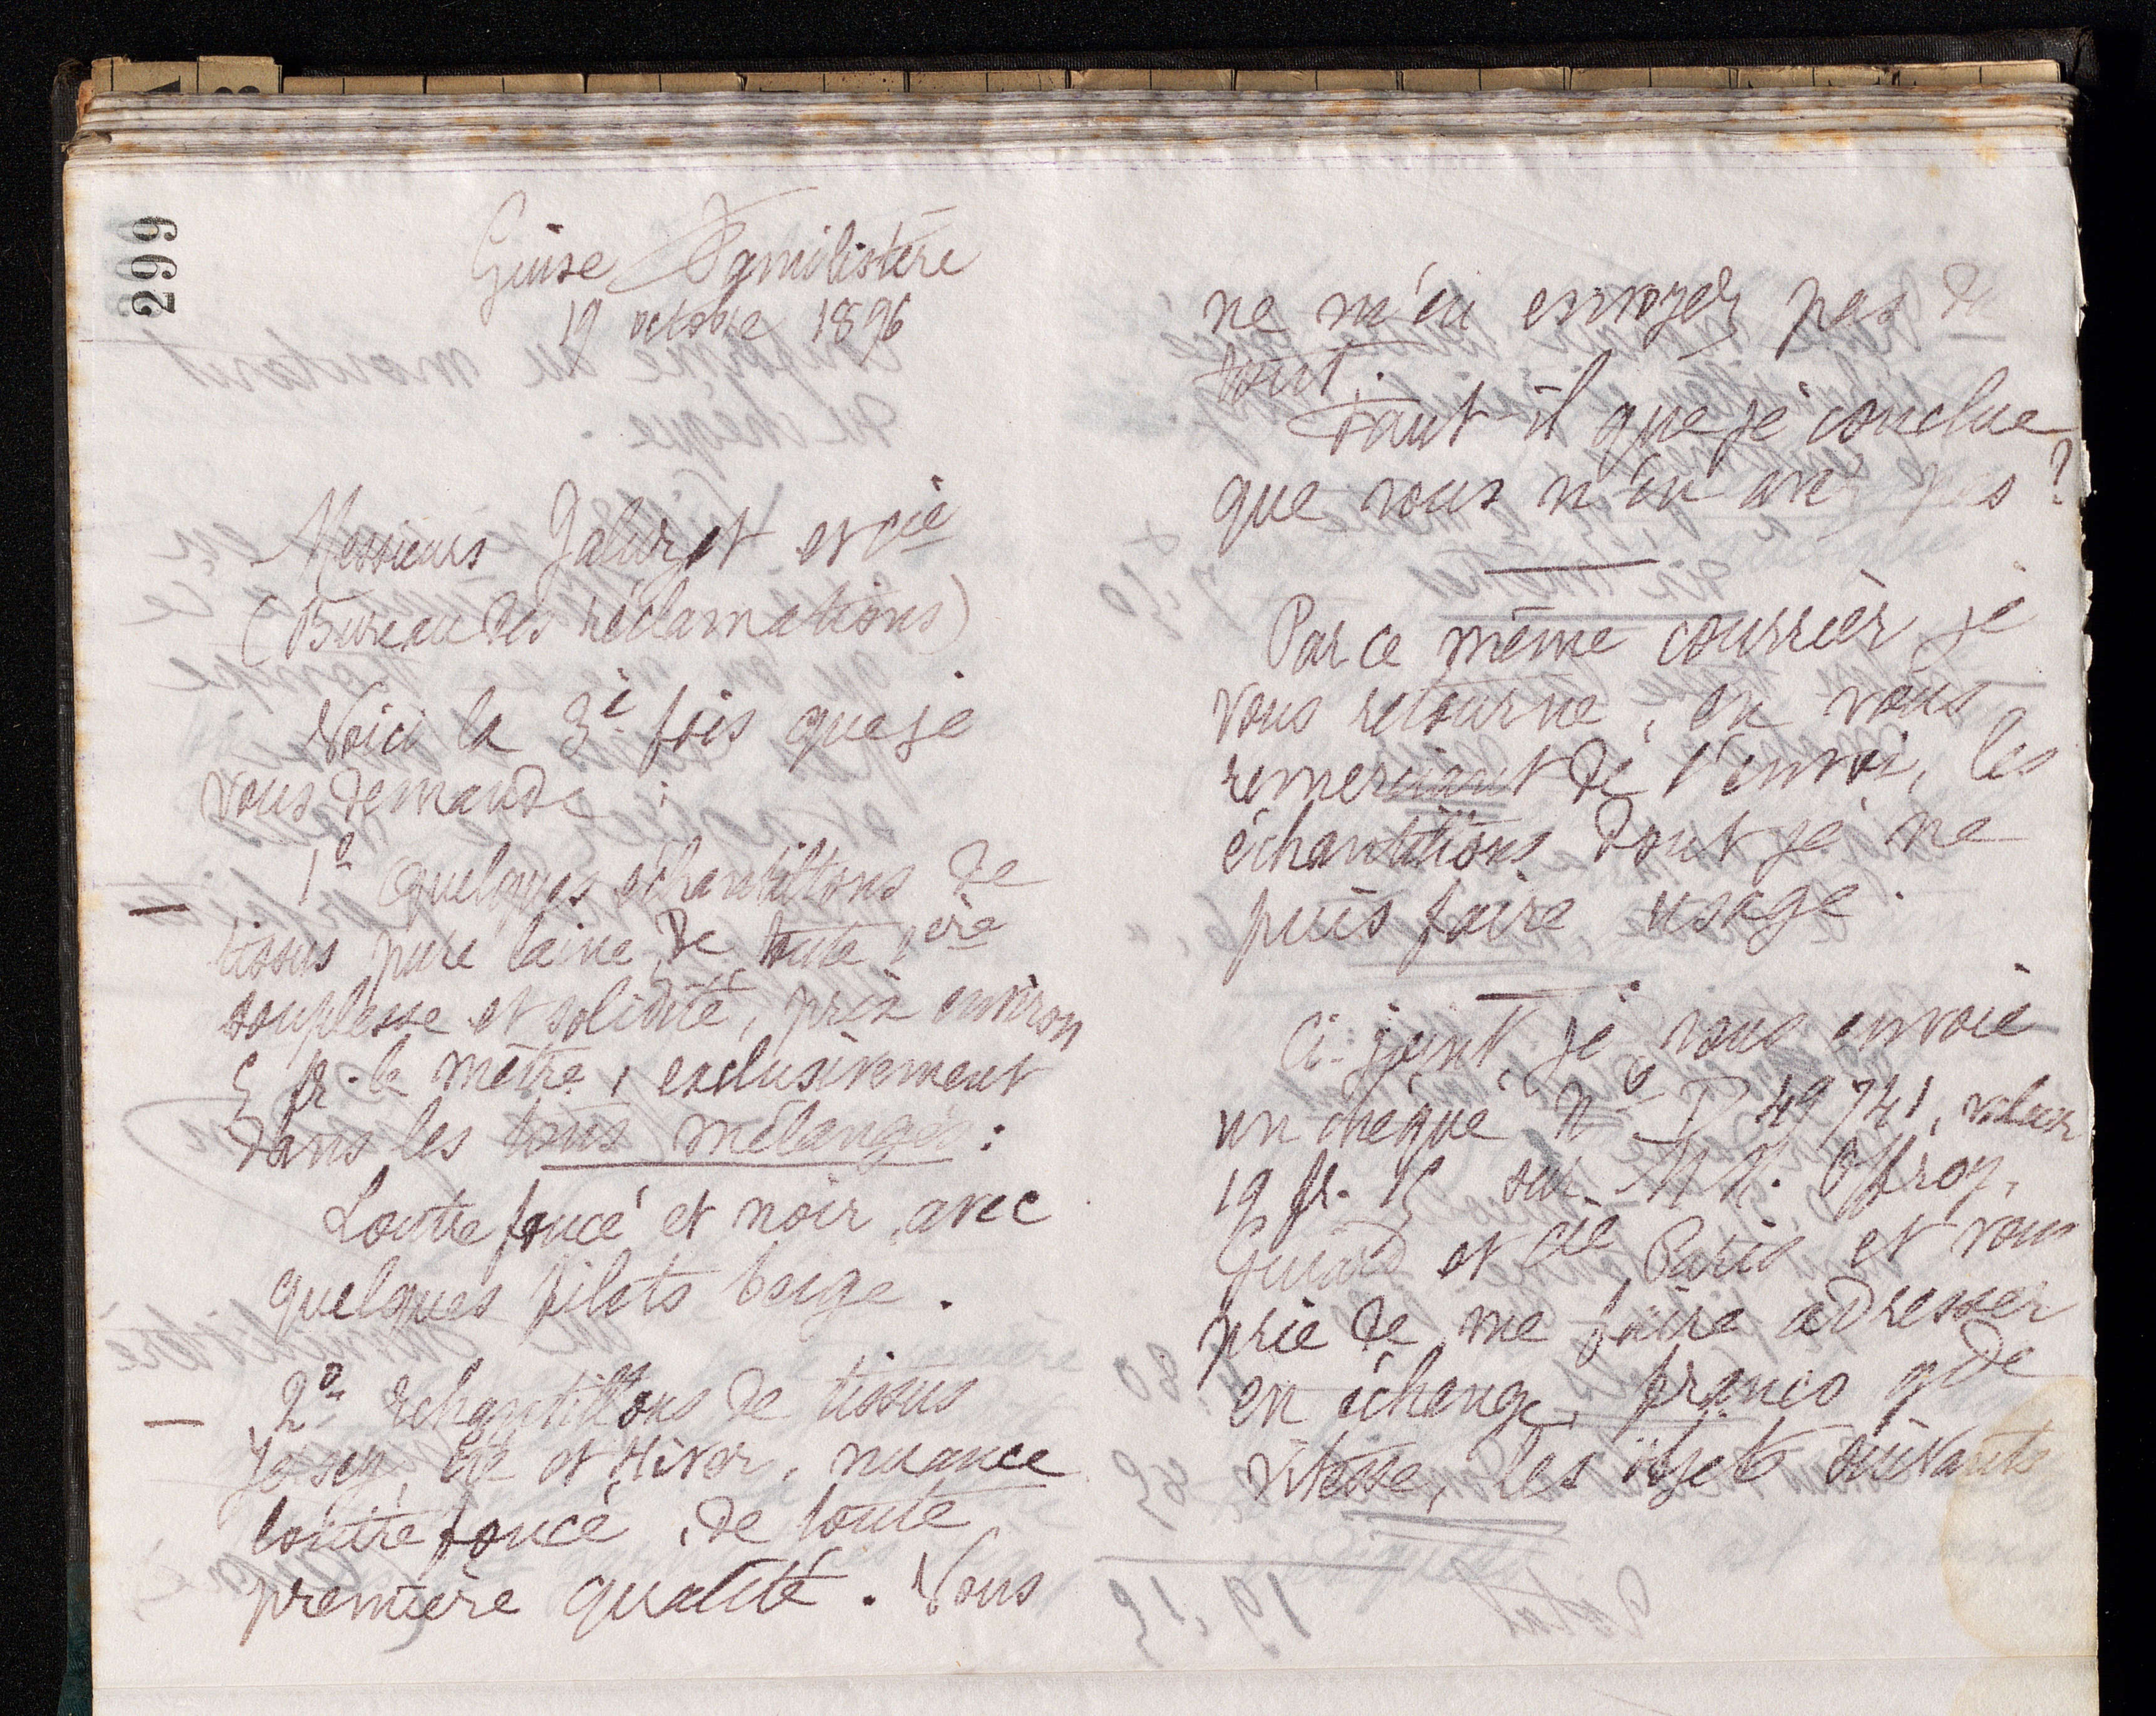 299
Guise Familistère
19 octobre 1896
Messieurs Jaluzot et cie
(Bureau des réclamations)
Voici la 3e fois que je
vous demande :
1o Quelques échantillons de
tissus pure laine, de toute 1ère
souplesse et solidité, prix environ
5 fr. le mètre, exclusivement
dans les tons mélangés :
Loutre foncé et noir, avec
quelques filets beige.
2o Echantillons de tissus
Jersey, été et Hiver, nuance
loutre foncé, de toute
première qualité. Vous
ne m'en envoyez pas du
tout.
Faut-il que je conclue
que vous n'en avez pas ?
Par ce même courrier je
vous retourne, en vous
remerciant de l'envoi, les
échantillons dont je ne
puis faire usage.
Ci-joint, je vous envoie
un chèque no D 49741, valeur
19 fr. 15 sur MM. Offroy,
Guiard et cie, Paris et vous
prie de me faire adresser
en échange, franco gde
vitesse, les objets suivants